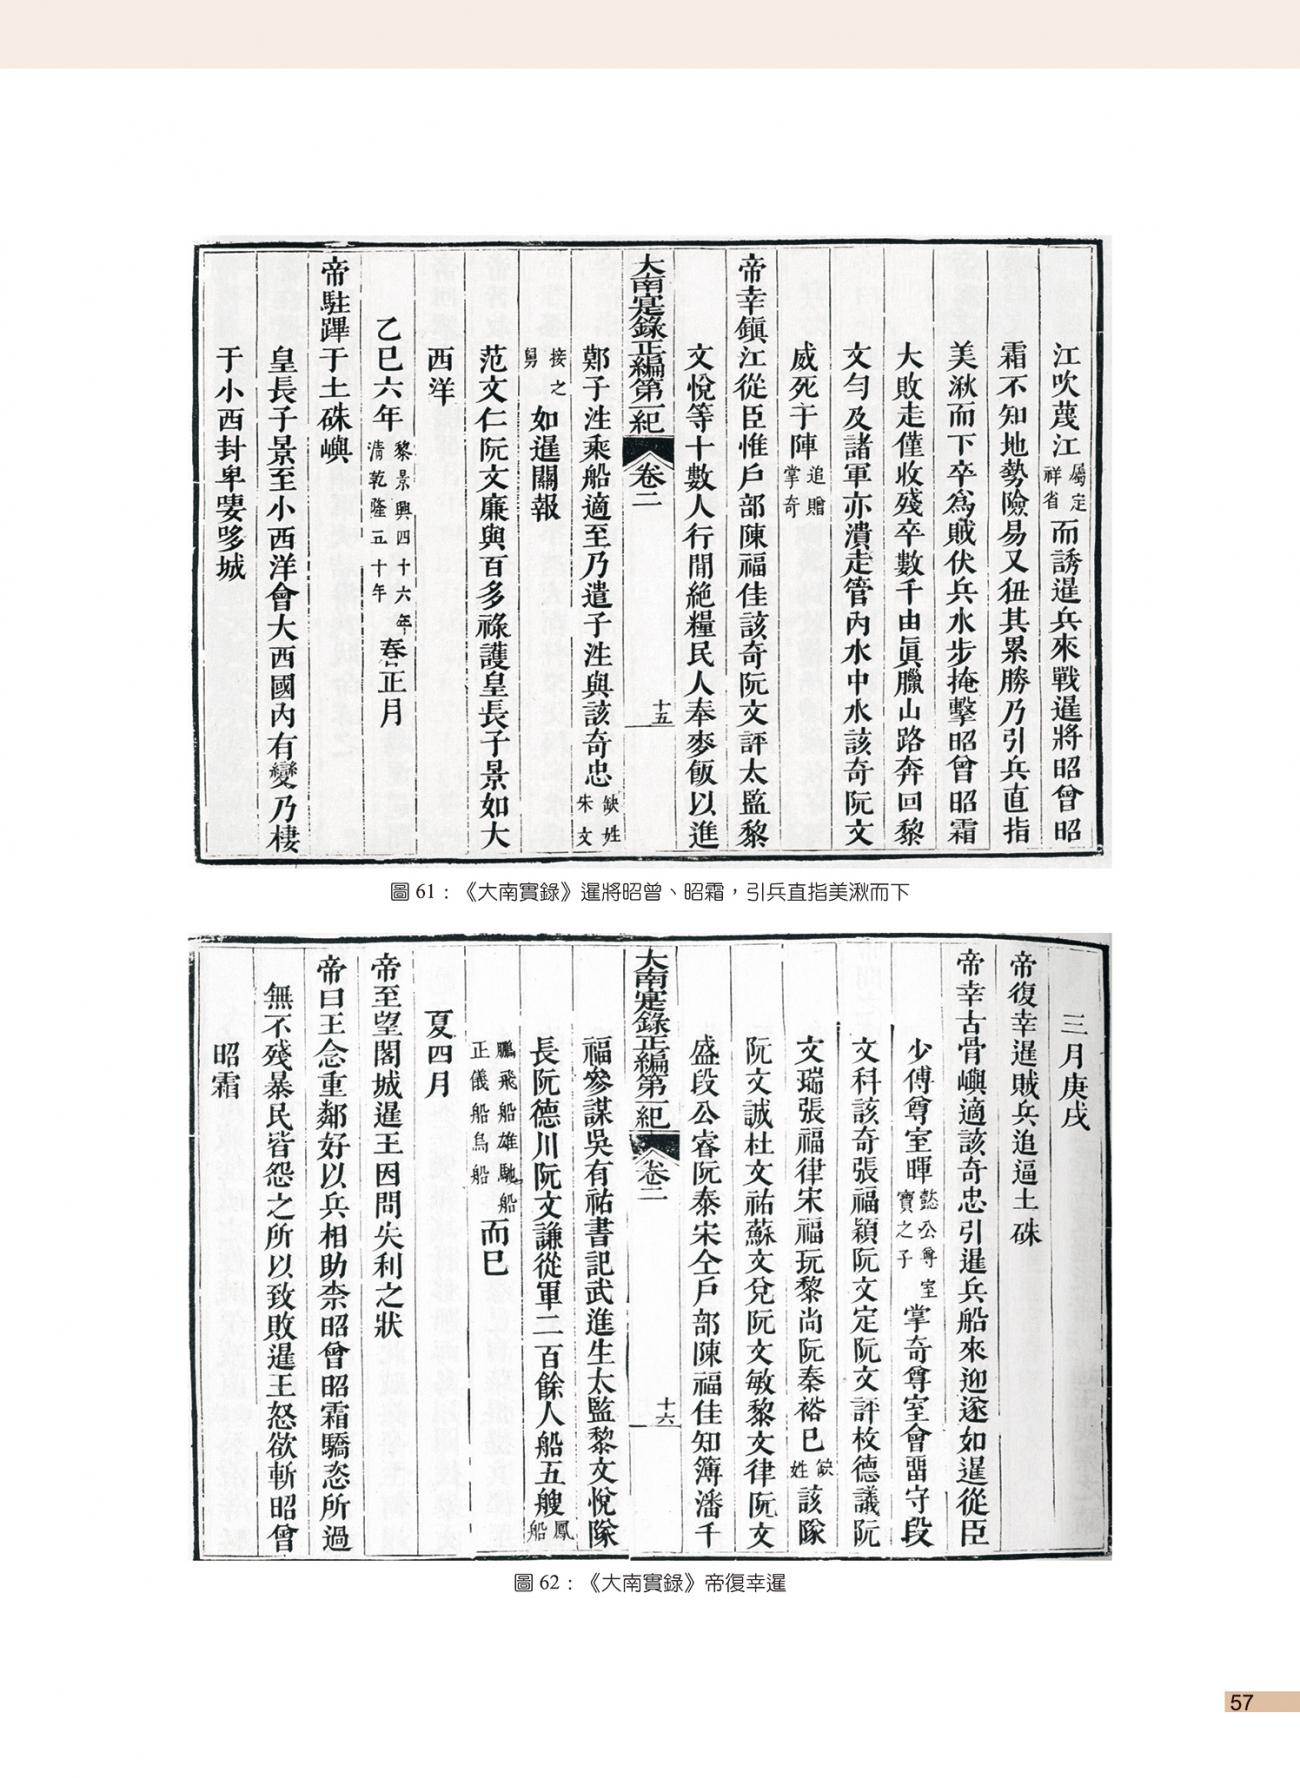 江吹蔑江屬定祥省而誘暹兵來戰暹將昭曾昭
霜不知地勢險易又狃其累勝乃引兵直指
美湫而下卒為賊伏兵水步掩擊昭曾昭霜
大敗走僅收殘卒數千由眞臘山路奔回黎
文勻及諸軍亦潰走管內水中水該奇阮文
威死于陣追贈掌奇
帝幸鎭江從臣惟戶部陳福佳該奇阮文評太監黎
文悅等十數人行間絶糧民人奉麥飯以進
大南寔錄正編第一紀 卷二 十五
鄭子泩乘船適至乃遣子泩與該奇忠缺姓朱文
接之舅如暹關報
范文仁阮文廉與百多祿護皇長子景如大
西洋
乙巳六年黎景興四十六年清乾隆五十年春正月
帝駐蹕于土硃嶼
皇長子景至小西洋會大西國內有變乃棲
于小西封卑㗑𠻀城
圖 61：《大南實錄》暹將昭曾、昭霜，引兵直指美湫而下
三月庚戌
帝復幸暹賊兵追逼土硃
帝幸古骨嶼適該奇忠引暹兵船來迎遂如暹從臣
少傅尊室暉懿公尊室寶之子掌奇尊室會畱守段
文科該奇張福穎阮文定阮文評枚德議阮
文瑞張福律宋福玩黎尚阮秦裕巳缺姓該隊
阮文誠杜文祐蘇文兌阮文敏黎文律阮文
盛段公睿阮泰宋仝戶部陳福佳知簿潘千
大南寔錄正編第一紀 卷二 十六
福參謀吳有祐書記武進生太監黎文悅隊
長阮德川阮文謙從軍二百餘人船五艘鳳船
鵬飛船雄馳船正儀船烏船而已
夏四月
帝至望閣城暹王因問失利之狀
帝曰王念重鄰好以兵相助柰昭曾昭霜驕恣所過
無不殘暴民皆怨之所以致敗暹王怒欲斬昭曾
昭霜
圖 62：《大南實錄》帝復幸暹
57